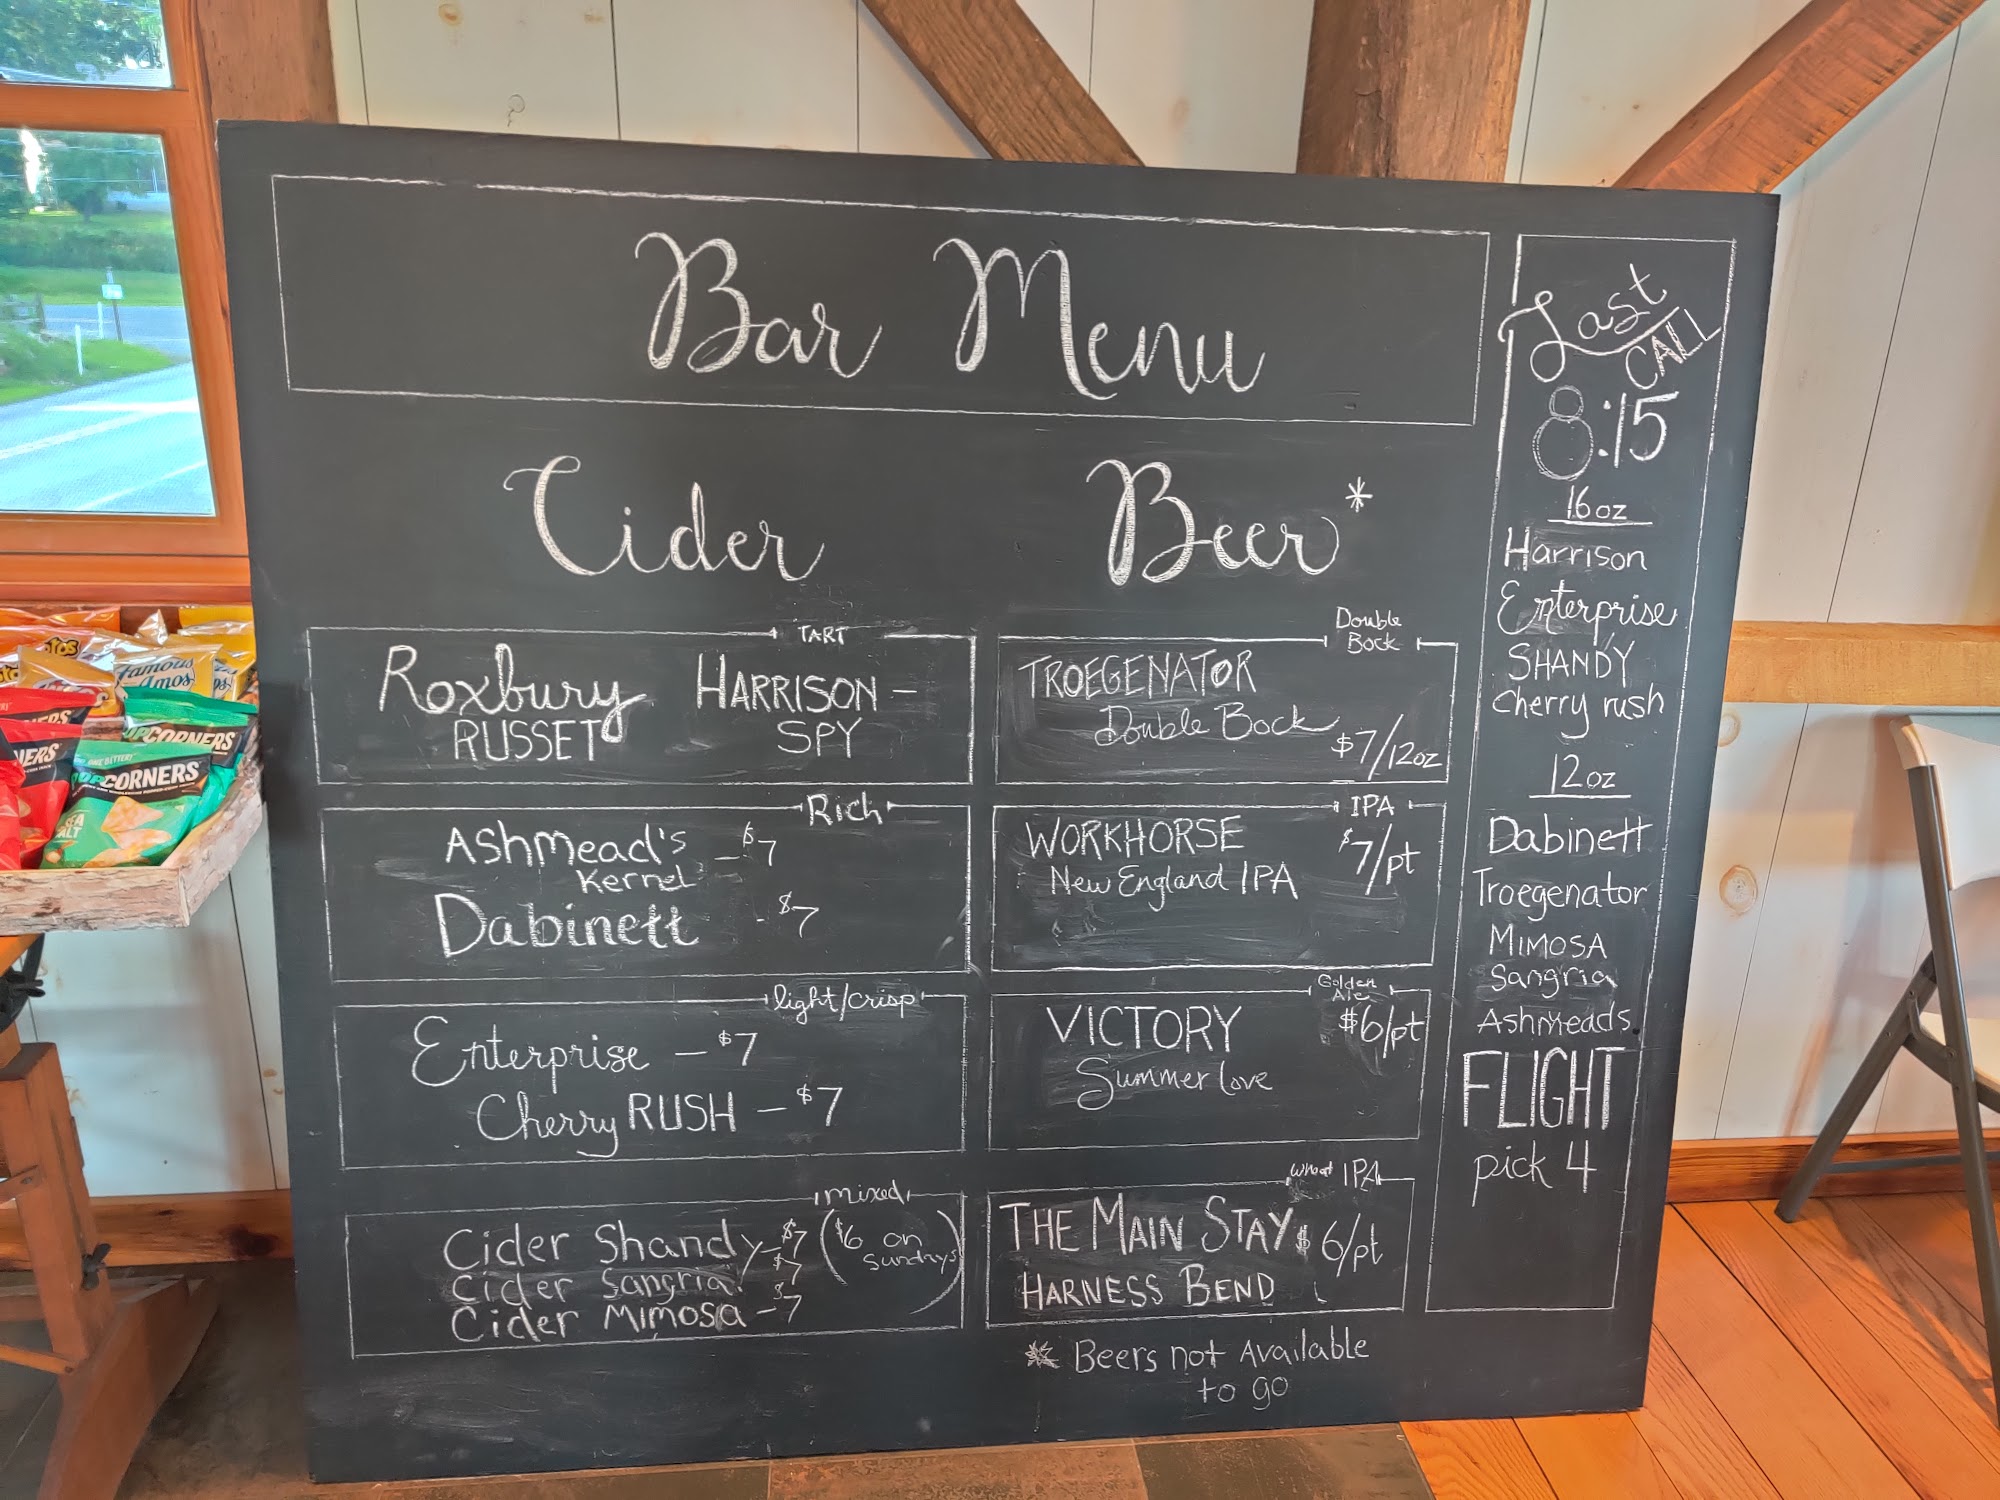 Bar Menu
Cider
Beer*
TART
Roxbury
RUSSET
HARRISON -
SPY
Rich
Ashmead's
Kernel
- $7
Dabinett - $7
light/crisp
Enterprise - $7
Cherry RUSH - $7
mixed
Cider Shandy - $7 ($6 on
Sundays)
Cider Sangria $7
Cider Mimosa - 7
Double
Bock
TROEGENATOR
Double Bock
$7/12oz
IPA
WORKHORSE
New England IPA
$7/pt
Golden
Ale
VICTORY
Summer Love
$6/pt
wheat IPA
THE MAIN STAY $6/pt
HARNESS BEND
* Beers not Available
to go
Last
CALL
8:15
16oz
Harrison
Enterprise
SHANDY
Cherry rush
12oz
Dabinett
Troegenator
MIMOSA
Sangria
Ashmeads
FLIGHT
pick 4
Famous
Amos
POPCORNERS
POPCORNERS
SEA
SALT